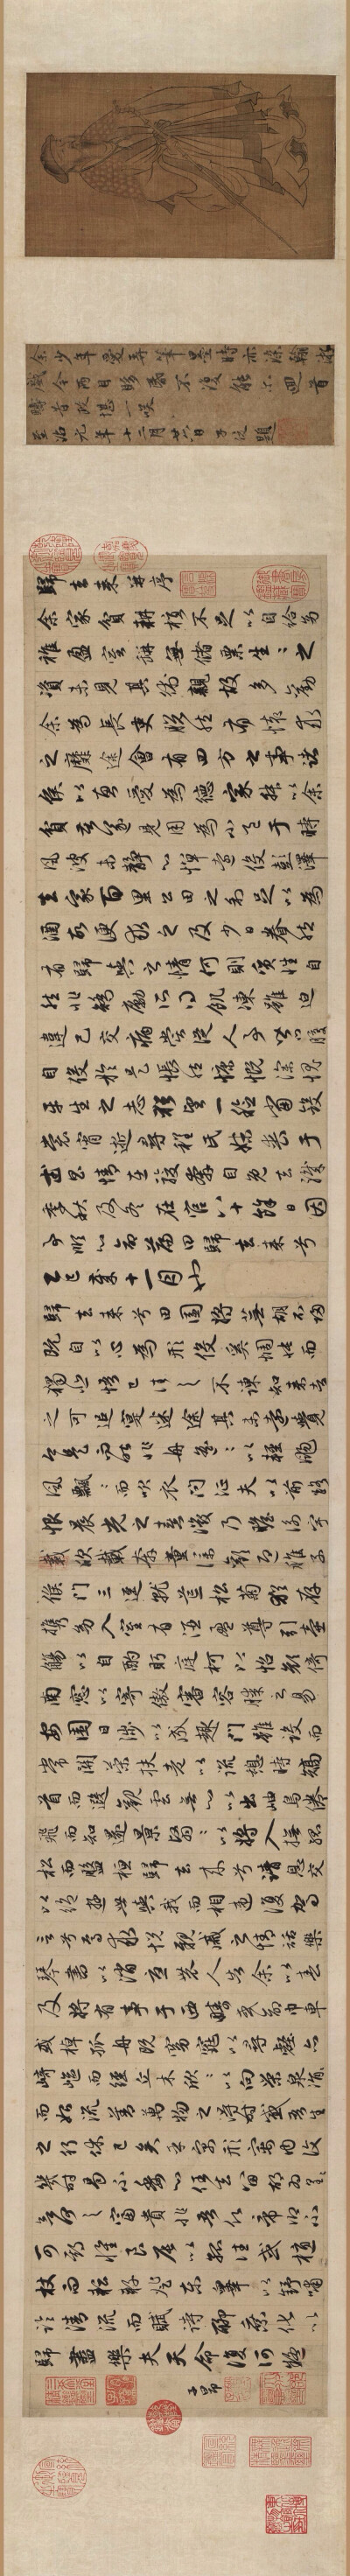 余少年愛弄筆墨時亦
戲今兩目眵昏不復能尒回首
疇昔政堪一咲
至治元年十二月廿六日子俊題
歸去來并序
余家貧耕植不足以自給幼
稚盈室缾無儲粟生〻之
資未見其術親故多勸
余為長吏脫然有懷求
之靡途會有四方之事諸
侯以惠愛為德家叔以余
貧苦遂見用為小邑于時
風波未靜心憚遠役彭澤
去家百里公田之利足以為
酒故便求之及少日眷然
有歸與之情何則質性自
然非矯勵所得飢凍雖迫
違己交病嘗從人事皆口腹
自役於是悵然慷慨深愧
平生之志猶望一稔當斂
裳宵逝尋程氏妹喪于
武昌情在駿奔自免去職
仲秋及冬在官八十餘日因
事順心命篇曰歸去來兮
乙巳歲十一月也
歸去來兮田園將蕪胡不歸
既自以心為形役奚惆悵而
獨悲悟已往之不諫知來者
之可追寔迷途其未遠覺
今是而昨非舟遙〻以輕颺
風飄〻而吹衣問征夫以前路
恨晨光之熹微乃瞻衡宇
載欣載奔童僕歡迎稚子
候門三逕就荒松菊猶存
攜幼入室有酒盈尊引壺
觴以自酌眄庭柯以怡顏倚
南窗以寄傲審容膝之易
安園日涉以成趣門雖設而
常關策扶老以流憩時矯
首而遐觀雲無心以出岫鳥倦
飛而知還景翳〻以將入撫孤
松而盤桓歸去來兮請息交
以絕遊世與我而相遺復駕
言兮焉求悅親戚之情話樂
琴書以消憂農人告余以春
及將有事于西疇或命巾車
或棹孤舟既窈窕以尋壑亦
崎嶇而經丘木欣〻以向榮泉涓〻
而始流羨萬物之得時感吾生
之行休已矣乎寓形宇內復
幾時曷不委心任去留胡為遑〻
兮何之富貴非吾願帝鄉不
可期懷良辰以孤往或植
杖而耘耔登東皋以舒嘯
臨清流而賦詩聊乘化以
歸盡樂夫天命復何疑
子昂